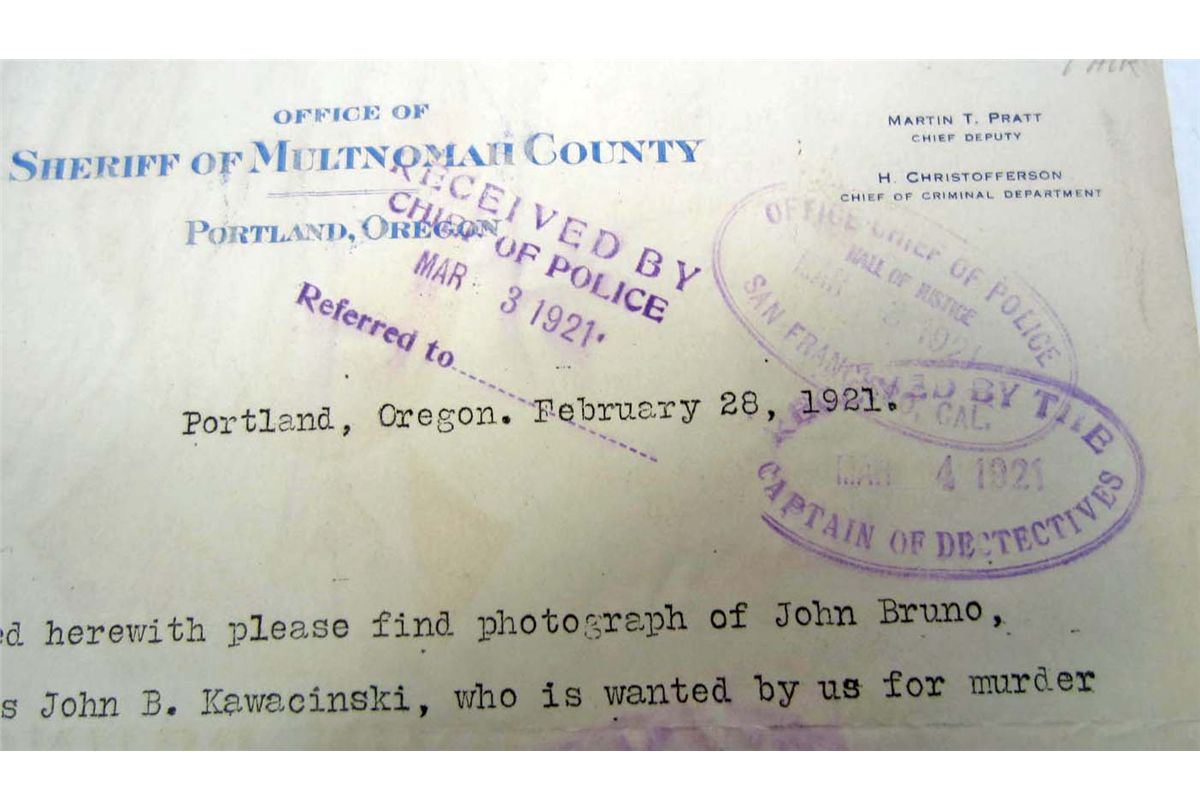 OFFICE OF
SHERIFF OF MULTNOMAH COUNTY
PORTLAND, OREGON
MARTIN T. PRATT
CHIEF DEPUTY
H. CHRISTOFFERSON
CHIEF OF CRIMINAL DEPARTMENT
RECEIVED BY
CHIEF OF POLICE
MAR 3 1921.
Referred to
OFFICE CHIEF OF POLICE
HALL OF JUSTICE
MAR 3 1921
SAN FRANCISCO, CAL.
RECEIVED BY THE
MAR 4 1921
CAPTAIN OF DETECTIVES
Portland, Oregon. February 28, 1921.
ed herewith please find photograph of John Bruno,
s John B. Kawacinski, who is wanted by us for murder